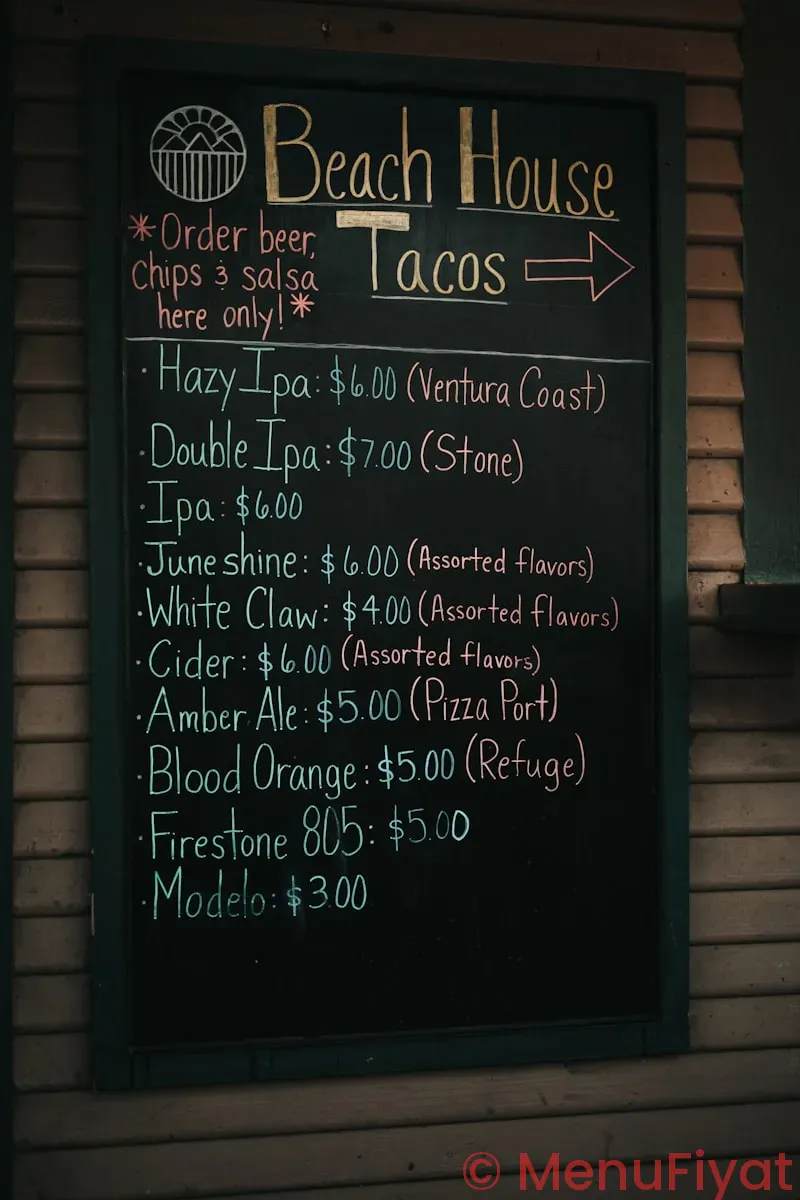 Beach House
Tacos
*Order beer,
chips & salsa
here only!*
· Hazy Ipa: $6.00 (Ventura Coast)
· Double Ipa: $7.00 (Stone)
· Ipa: $6.00
· Juneshine: $6.00 (Assorted flavors)
· White Claw: $4.00 (Assorted flavors)
· Cider: $6.00 (Assorted flavors)
· Amber Ale: $5.00 (Pizza Port)
· Blood Orange: $5.00 (Refuge)
· Firestone 805: $5.00
· Modelo: $3.00
© MenuFiyat